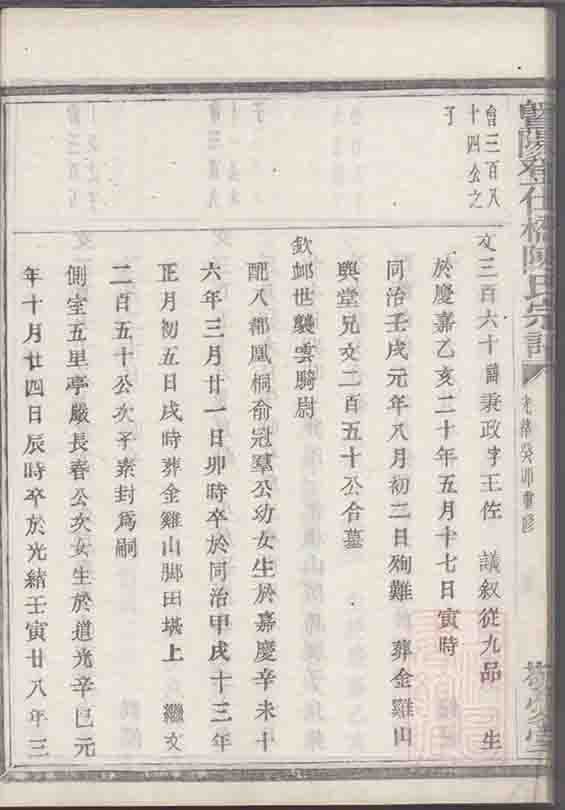 暨陽登仕橋陳氏宗譜
光緒癸卯重修
曾三百八
十四公之
子
文三百六十諱秉政字王佐 議叙從九品 生
於慶嘉乙亥二十年五月十七日寅時
同治壬戌元年八月初二日殉難 葬金雞山
與堂兄文二百五十公合墓
欽卹世襲雲騎尉
配八都凰桐俞冠羣公幼女生於嘉慶辛未十
六年三月廿一日卯時卒於同治甲戌十三年
正月初五日戌時葬金雞山脚田塍上 繼文
二百五十公次子素封為嗣
側室五里亭嚴長春公次女生於道光辛巳元
年十月廿四日辰時卒於光緒壬寅廿八年三